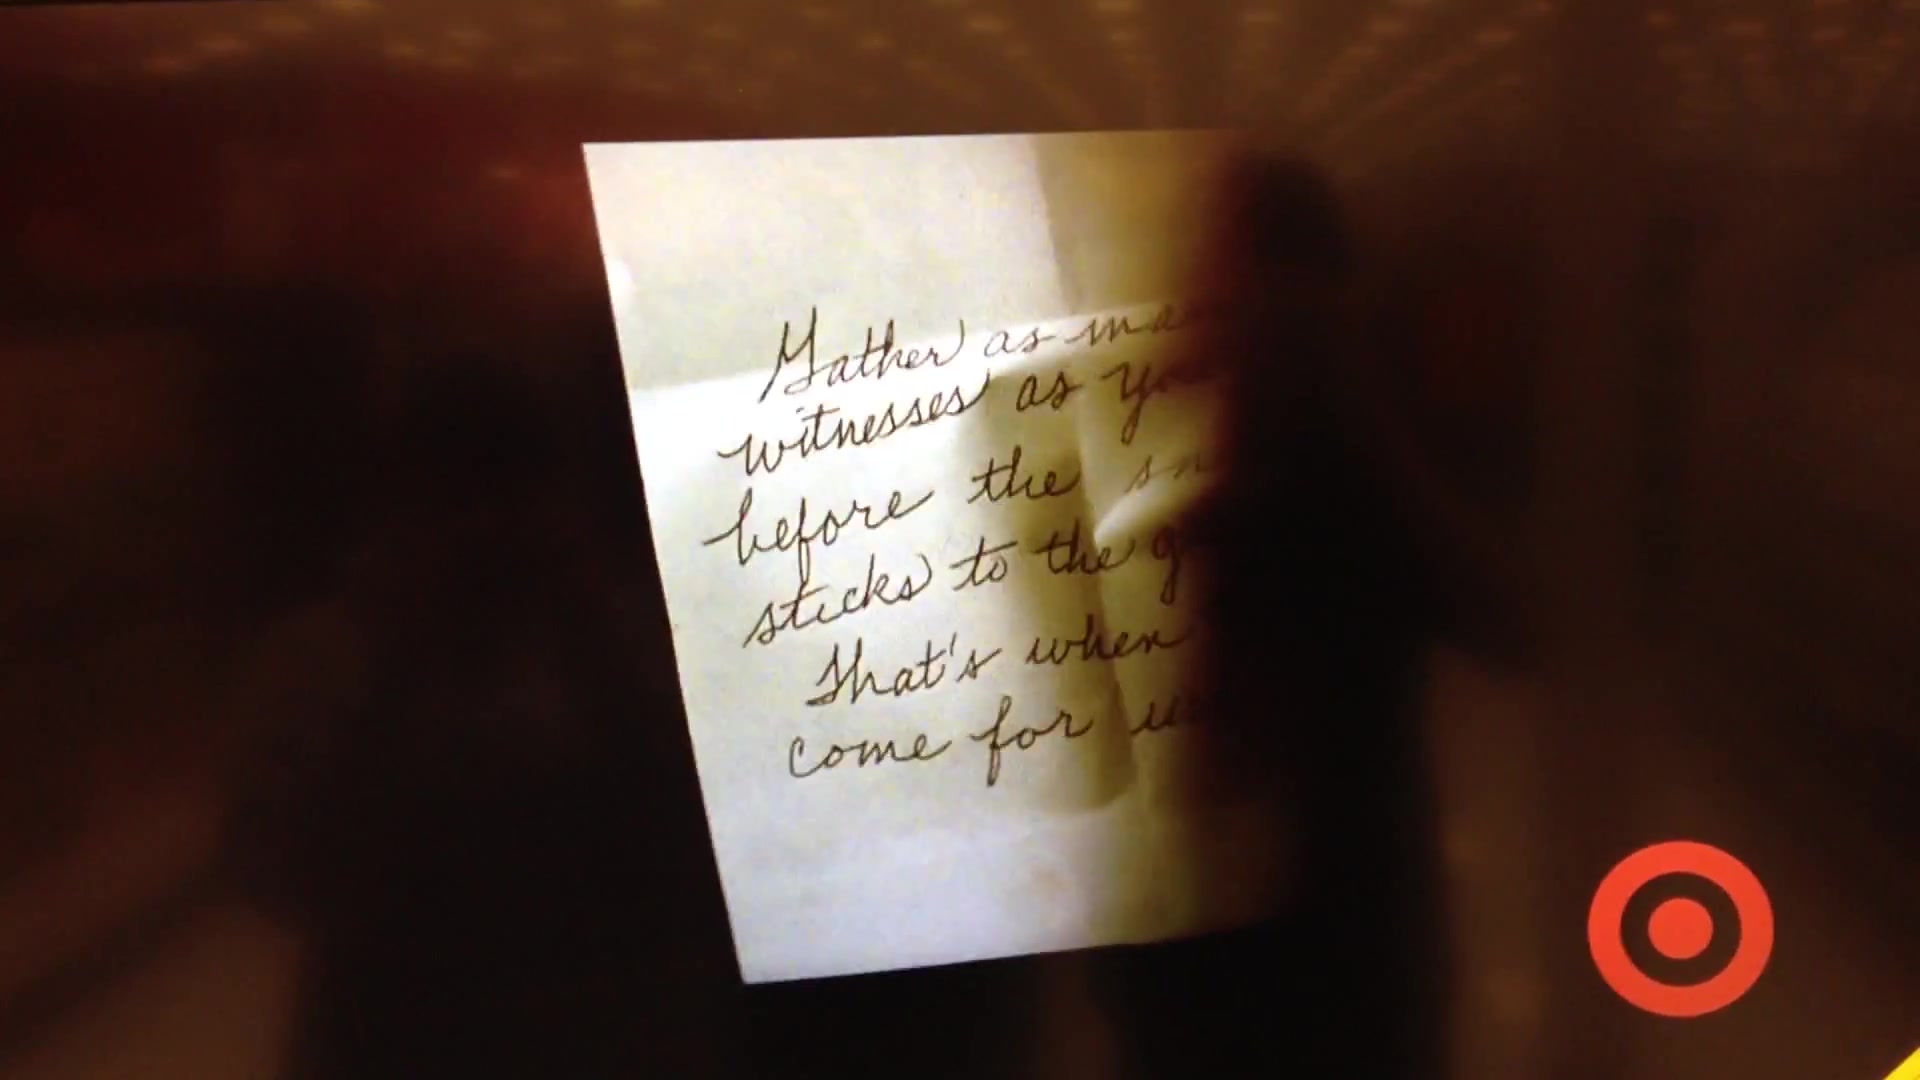 Gather as ma
witnesses as yo
before the sn
sticks to the g
That's when
come for us